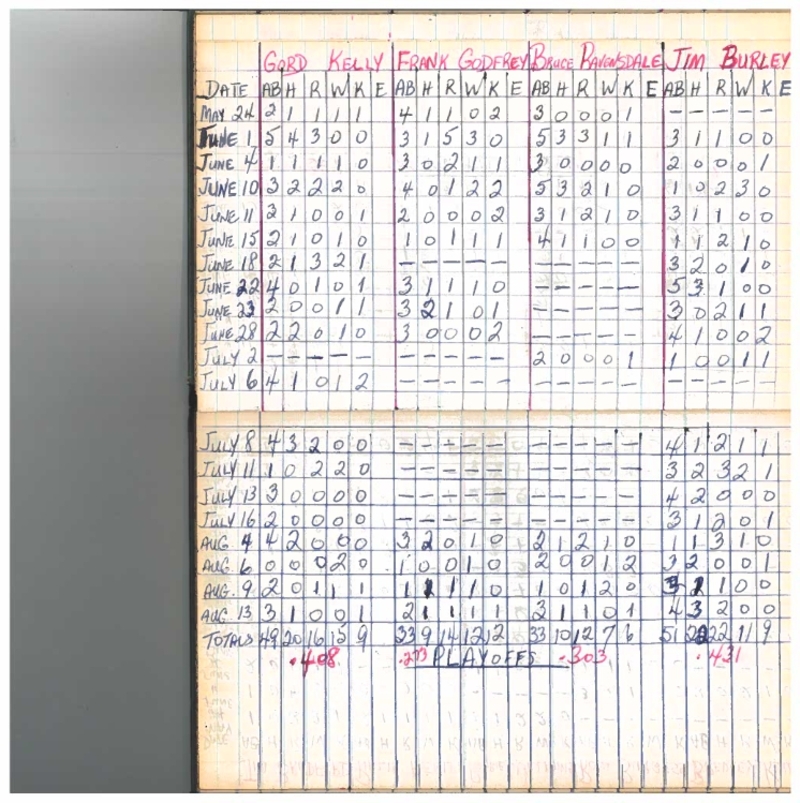 GORD KELLY FRANK GODFREY BRUCE RAVENSDALE JIM BURLEY
DATE AB H R W K E AB H R W K E AB H R W K E AB H R W K E
MAY 24 2 1 1 1 1 4 1 1 0 2 3 0 0 0 1 – – – – –
JUNE 1 5 4 3 0 0 3 1 5 3 0 5 3 3 1 1 3 1 1 0 0
JUNE 4 1 1 1 1 0 3 0 2 1 1 3 0 0 0 0 2 0 0 0 1
JUNE 10 3 2 2 2 0 4 0 1 2 2 5 3 2 1 0 1 0 2 3 0
JUNE 11 2 1 0 0 1 2 0 0 0 2 3 1 2 1 0 3 1 1 0 0
JUNE 15 2 1 0 1 0 1 0 1 1 1 4 1 1 0 0 1 1 2 1 0
JUNE 18 2 1 3 2 1 – – – – – – – – – – 3 2 0 1 0
JUNE 22 4 0 1 0 1 3 1 1 1 0 – – – – – 5 3 1 0 0
JUNE 23 2 0 0 1 1 3 2 1 0 1 – – – – – 3 0 2 1 1
JUNE 28 2 2 0 1 0 3 0 0 0 2 – – – – – 4 1 0 0 2
JULY 2 – – – – – – – – – – 2 0 0 0 1 1 0 0 1 1
JULY 6 4 1 0 1 2 – – – – – – – – – – – – – – –
JULY 8 4 3 2 0 0 – – – – – – – – – – 4 1 2 1 1
JULY 11 1 0 2 2 0 – – – – – – – – – – 3 2 3 2 1
JULY 13 3 0 0 0 0 – – – – – – – – – – 4 2 0 0 0
JULY 16 2 0 0 0 0 – – – – – – – – – – 3 1 2 0 1
AUG 4 4 2 0 0 0 3 2 0 1 0 2 1 2 1 0 1 1 3 1 0
AUG. 6 0 0 0 2 0 1 0 0 1 0 2 0 0 1 2 3 2 0 0 1
AUG. 9 2 0 1 1 1 1 1 1 1 0 1 0 1 2 0 3 1 1 0 0
AUG 13 3 1 0 0 1 2 1 1 1 1 3 1 1 0 1 4 3 2 0 0
TOTALS 49 20 16 15 9 33 9 14 12 12 33 10 12 7 6 51 22 22 11 9
.408 .273 PLAYOFFS .303 .431